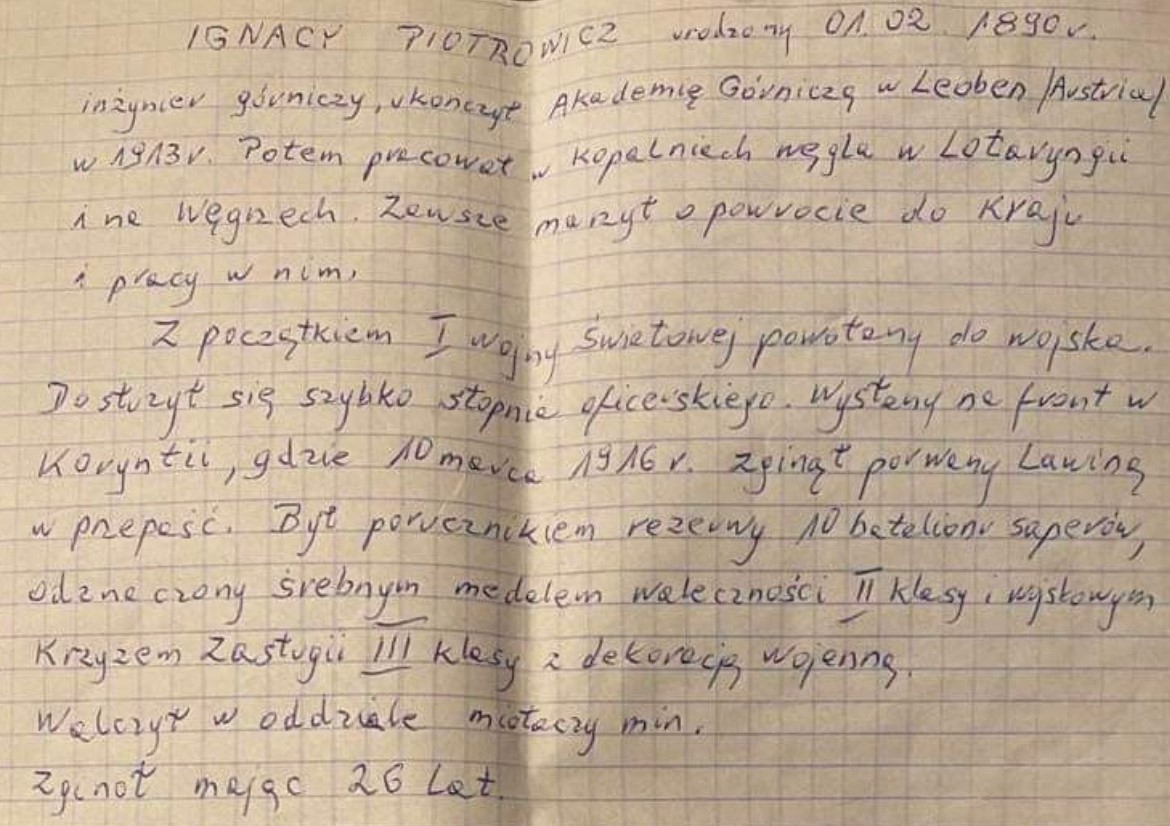 IGNACY PIOTROWICZ urodzony 01.02.1890r.
inżynier górniczy, ukończył Akademię Górniczą w Leoben /Austria/
w 1913r. Potem pracował w kopalniach węgla w Lotaryngii
i na Węgrzech. Zawsze marzył o powrocie do Kraju
i pracy w nim.
Z początkiem I wojny światowej powołany do wojska.
Dosłużył się szybko stopnia oficerskiego. Wysłany na front w
Koryntii, gdzie 10 marca 1916r. zginął porwany Lawiną
w przepaść. Był porucznikiem rezerwy 10 batalionu saperów,
odznaczony śrebnym medalem waleczności II klasy i wojskowym
Krzyżem Zasługii III klasy z dekoracją wojenną.
Walczył w oddziale miotaczy min.
Zginoł mając 26 Lat.